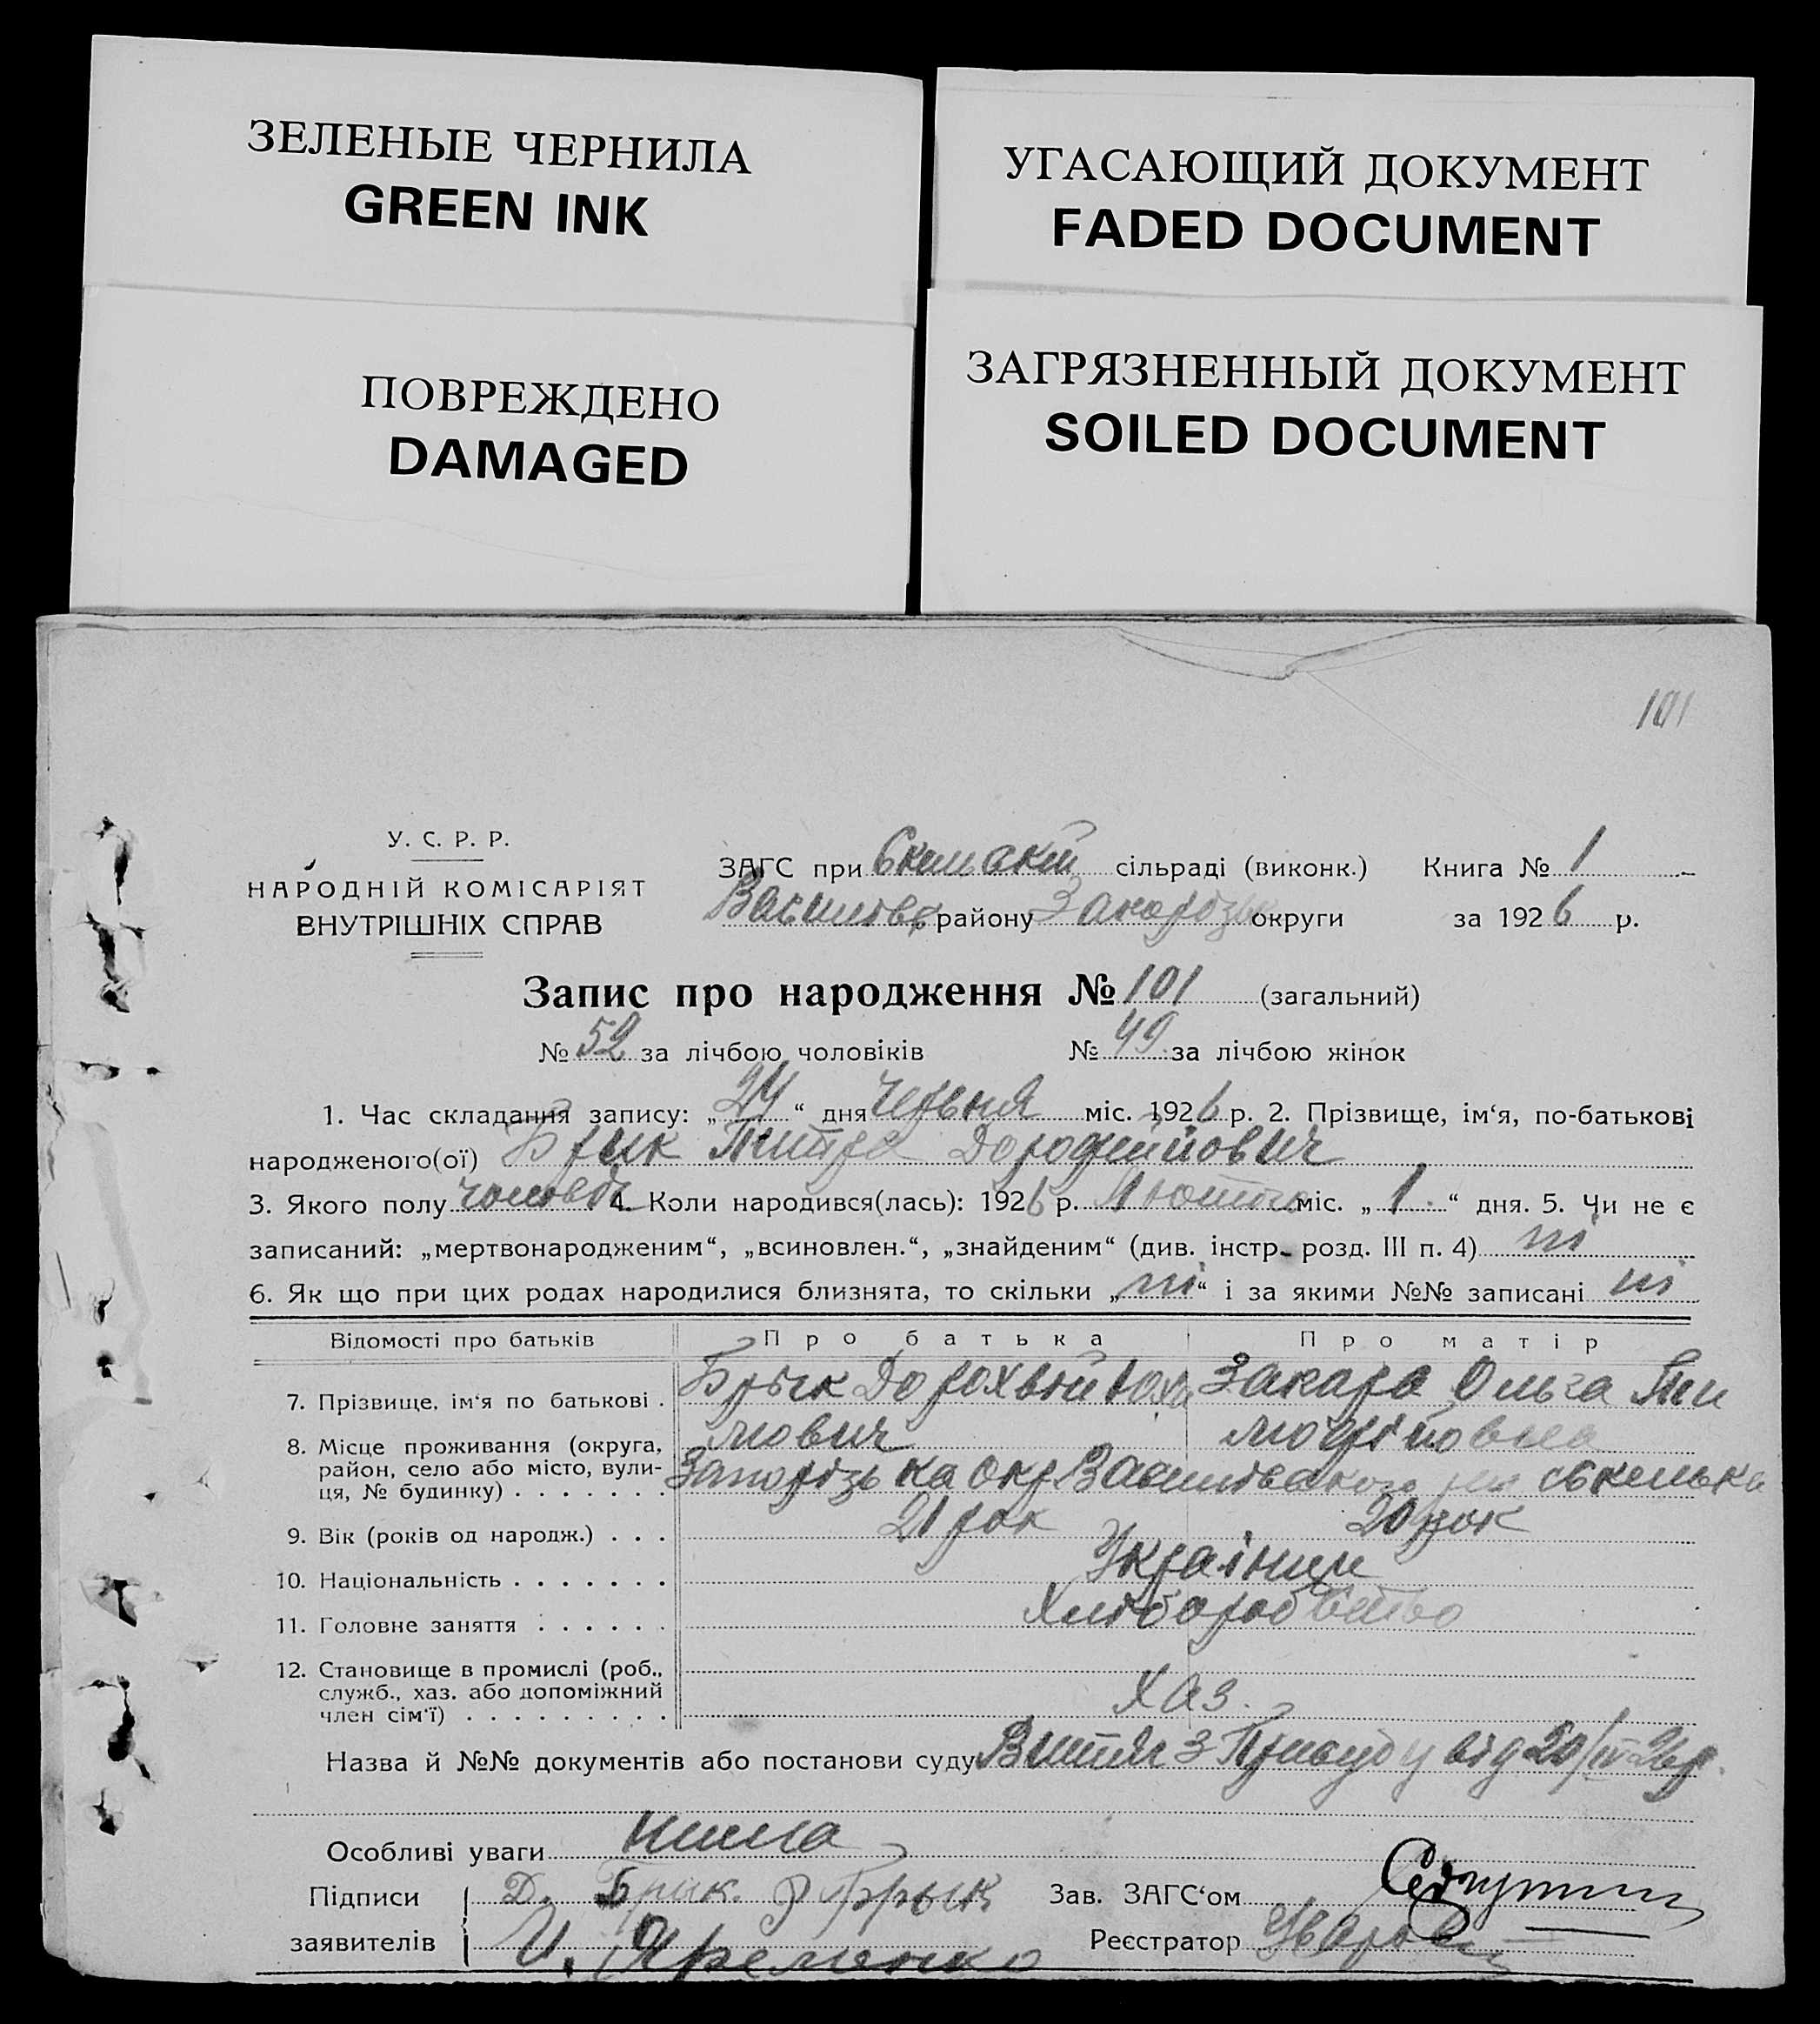 ЗЕЛЕНЫЕ ЧЕРНИЛА
GREEN INK
УГАСАЮЩИЙ ДОКУМЕНТ
FADED DOCUMENT
ПОВРЕЖДЕНО
DAMAGED
ЗАГРЯЗНЕННЫЙ ДОКУМЕНТ
SOILED DOCUMENT
101
У. С. Р. Р.
НАРОДНІЙ КОМІСАРІЯТ
ВНУТРІШНІХ СПРАВ
ЗАГС при сільраді (виконк.) Книга № 1
Василівс району округи за 1926 р.
Запис про народження № 101 (загальний)
№ 52 за лічбою чоловіків № 49 за лічбою жінок
1. Час складання запису: „24“ дня Червня міс. 1926 р. 2. Прізвище, ім‘я, по-батькові
народженого(ої) Брик Дорофийович
3. Якого полу чоловіч 4. Коли народився(лась): 1926 р. Лютого міс. „1“ дня. 5. Чи не є
записаний: „мертвонародженим“, „всиновлен.“, „знайденим“ (див. інстр. розд. III п. 4) ні
6. Як що при цих родах народилися близнята, то скільки „ні“ і за якими №№ записані ні
Відомості про батьків Про батька Про матір
7. Прізвище, ім‘я по батькові . Брик Дорохвій Юхи Закара Ольга Ти
мович мофіївна
8. Місце проживання (округа,
район, село або місто, вули-
ця, № будинку) . . . . . . . Запорізька окр Василівського
9. Вік (років од народж.) . . . 21 рок 20 рок
10. Національність . . . . . . . Українци
11. Головне заняття . . . . . . Хліборобство
12. Становище в промислі (роб.,
служб., хаз. або допоміжний
член сім‘ї) . . . . . . . . . Хаз.
Назва й №№ документів або постанови суду Витяг з від 20/IV 26 р.
Особливі уваги Нима
Підписи Д. Брик. Брык Зав. ЗАГС‘ом
заявителів И. Яременко Реєстратор